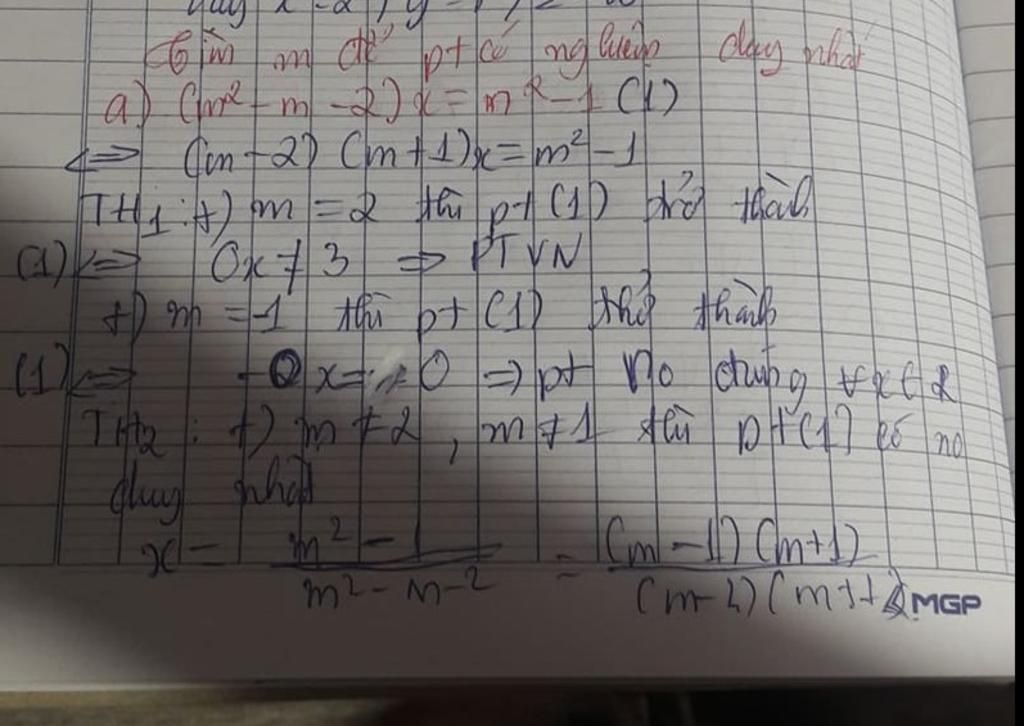 Tìm m để pt có nghiệm duy nhất
a) (m² - m - 2) x = m² - 1 (1)
<=> (m - 2) (m + 1) x = m² - 1
TH1: +) m = 2 thì pt (1) trở thành
(1) <=> 0x ≠ 3 => PTVN
+) m = -1 thì pt (1) thở thành
(1) <=> 0x = 0 => pt no đúng ∀x∈R
TH2: +) m ≠ 2, m ≠ 1 thì pt (1) có no
duy nhất
x = (m² - 1)/(m² - m - 2) = ((m - 1) (m + 1))/((m - 2) (m + 1))
MGP